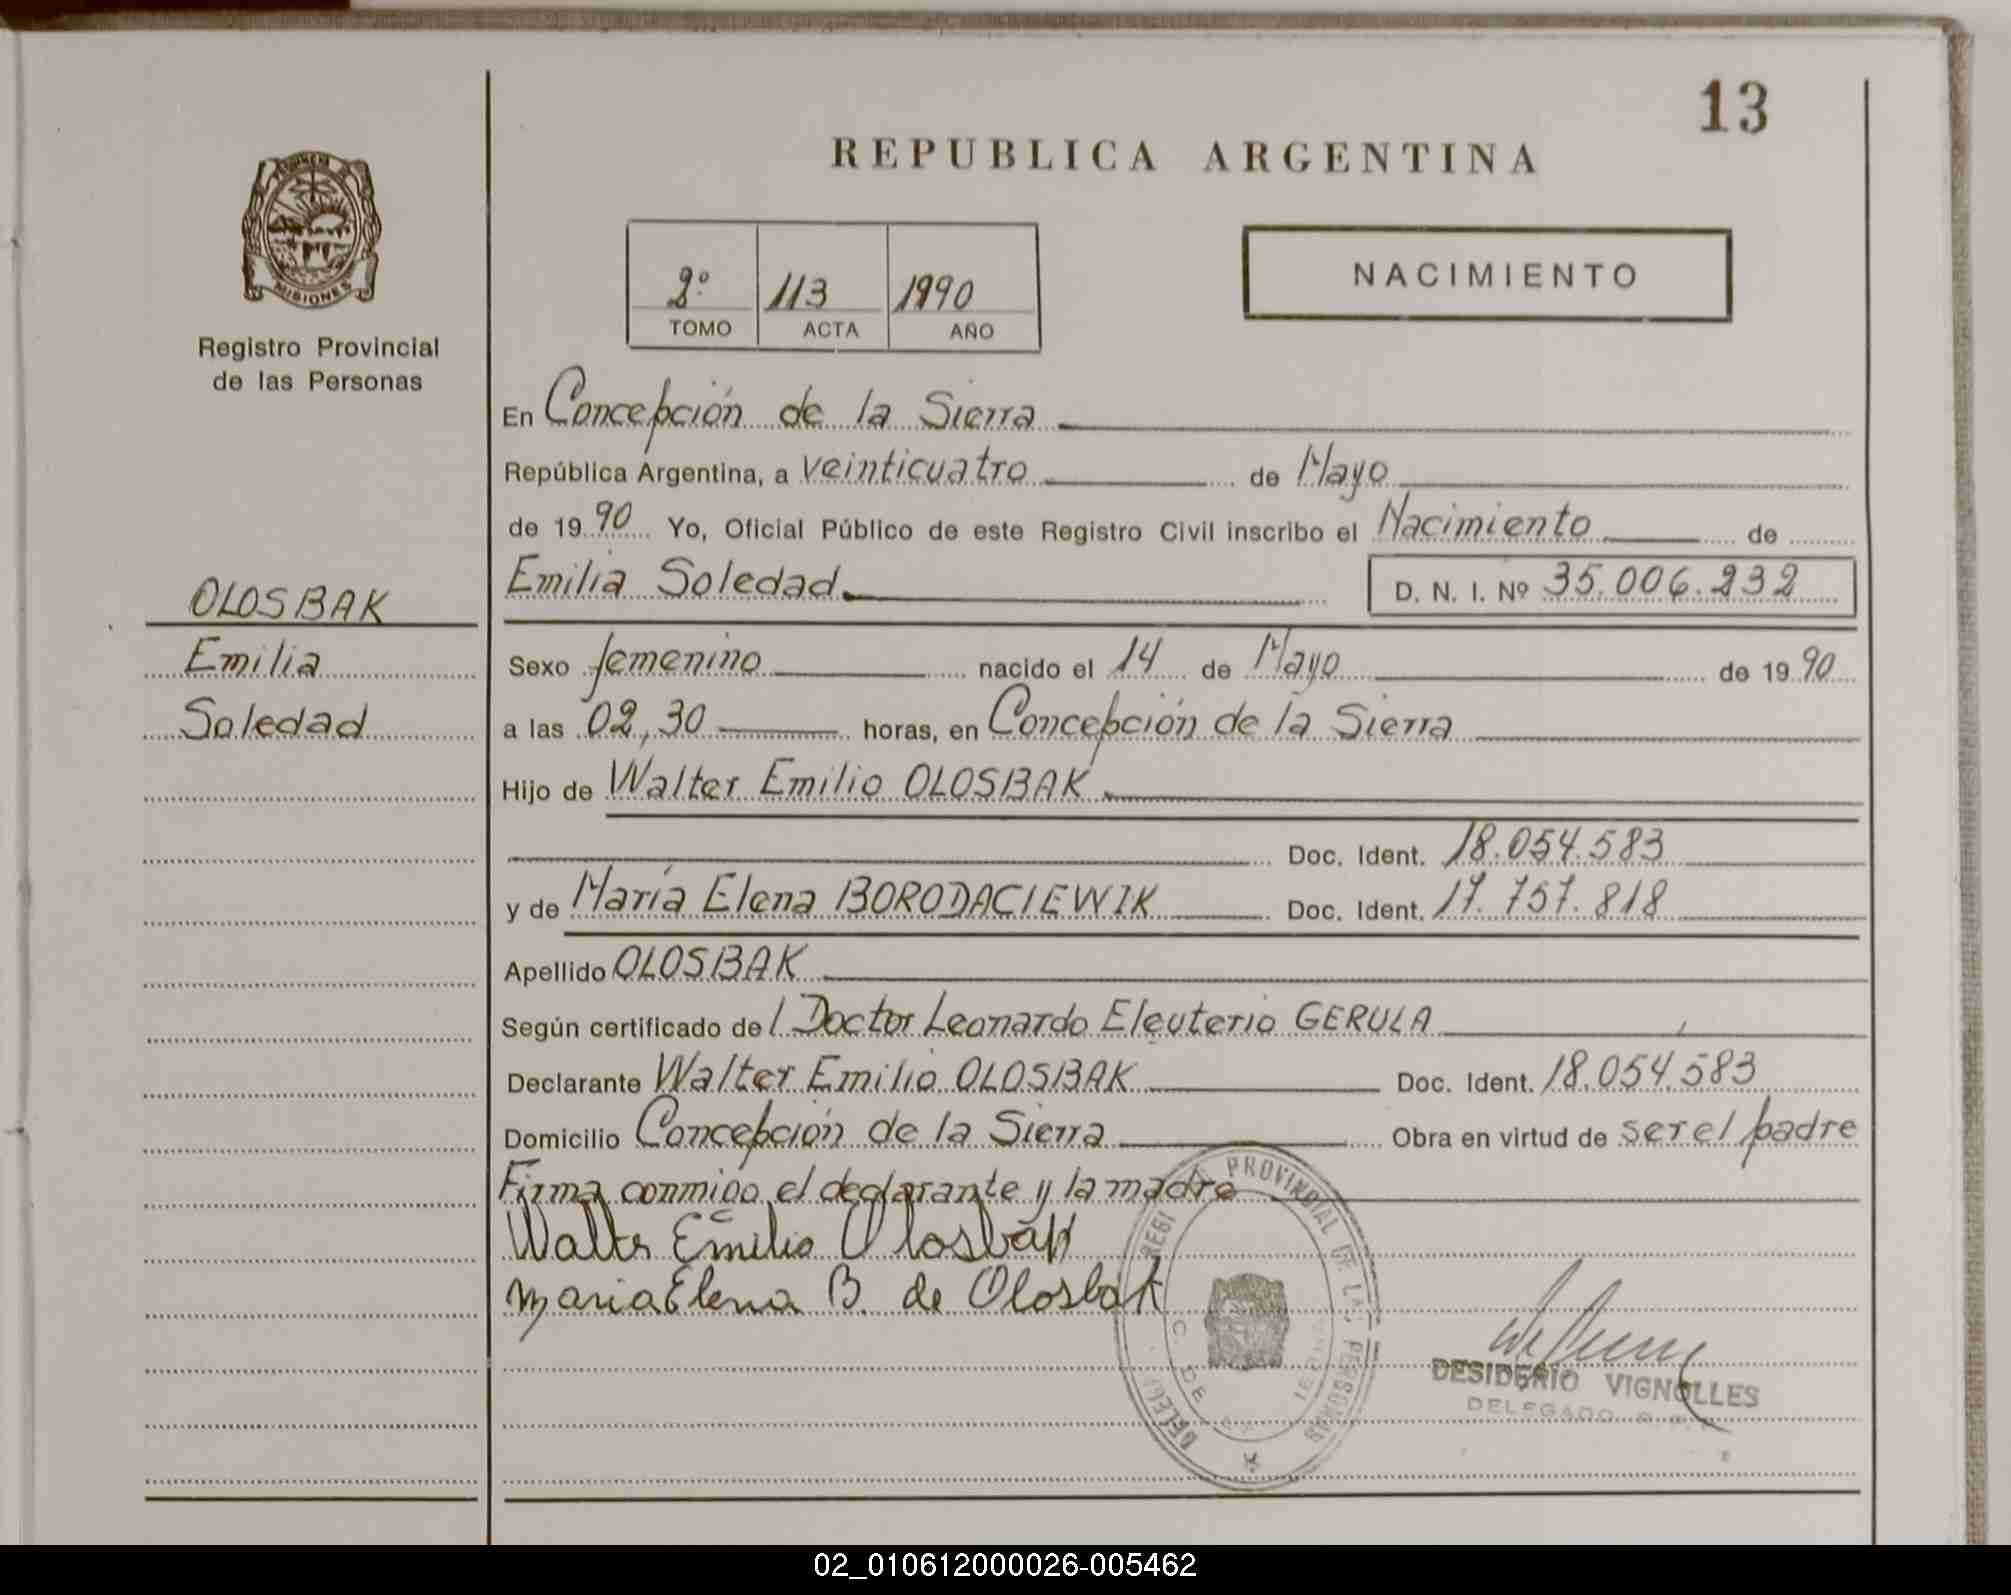 13
REPUBLICA ARGENTINA
MISIONES
Registro Provincial
de las Personas
2º 113 1990
TOMO ACTA AÑO
NACIMIENTO
En Concepción de la Sierra
República Argentina, a veinticuatro de Mayo
de 1990 Yo, Oficial Público de este Registro Civil inscribo el Nacimiento de
Emilia Soledad D. N. I. Nº 35.006.232
OLOSBAK
Emilia
Soledad
Sexo femenino nacido el 14 de Mayo de 1990
a las 02,30 horas, en Concepción de la Sierra
Hijo de Walter Emilio OLOSBAK
Doc. Ident. 18.054.583
y de María Elena BORODACIEWIK Doc. Ident. 17.757.818
Apellido OLOSBAK
Según certificado del Doctor Leonardo Eleuterio GERULA
Declarante Walter Emilio OLOSBAK Doc. Ident. 18.054.583
Domicilio Concepción de la Sierra Obra en virtud de ser el padre
Firma conmigo el declarante y la madre
Walter Emilio Olosbak
Maria Elena B. de Olosbak
PROVINCIAL DE LAS PERSONAS
DESIDERIO VIGNOLLES
DELEGADO
02_010612000026-005462